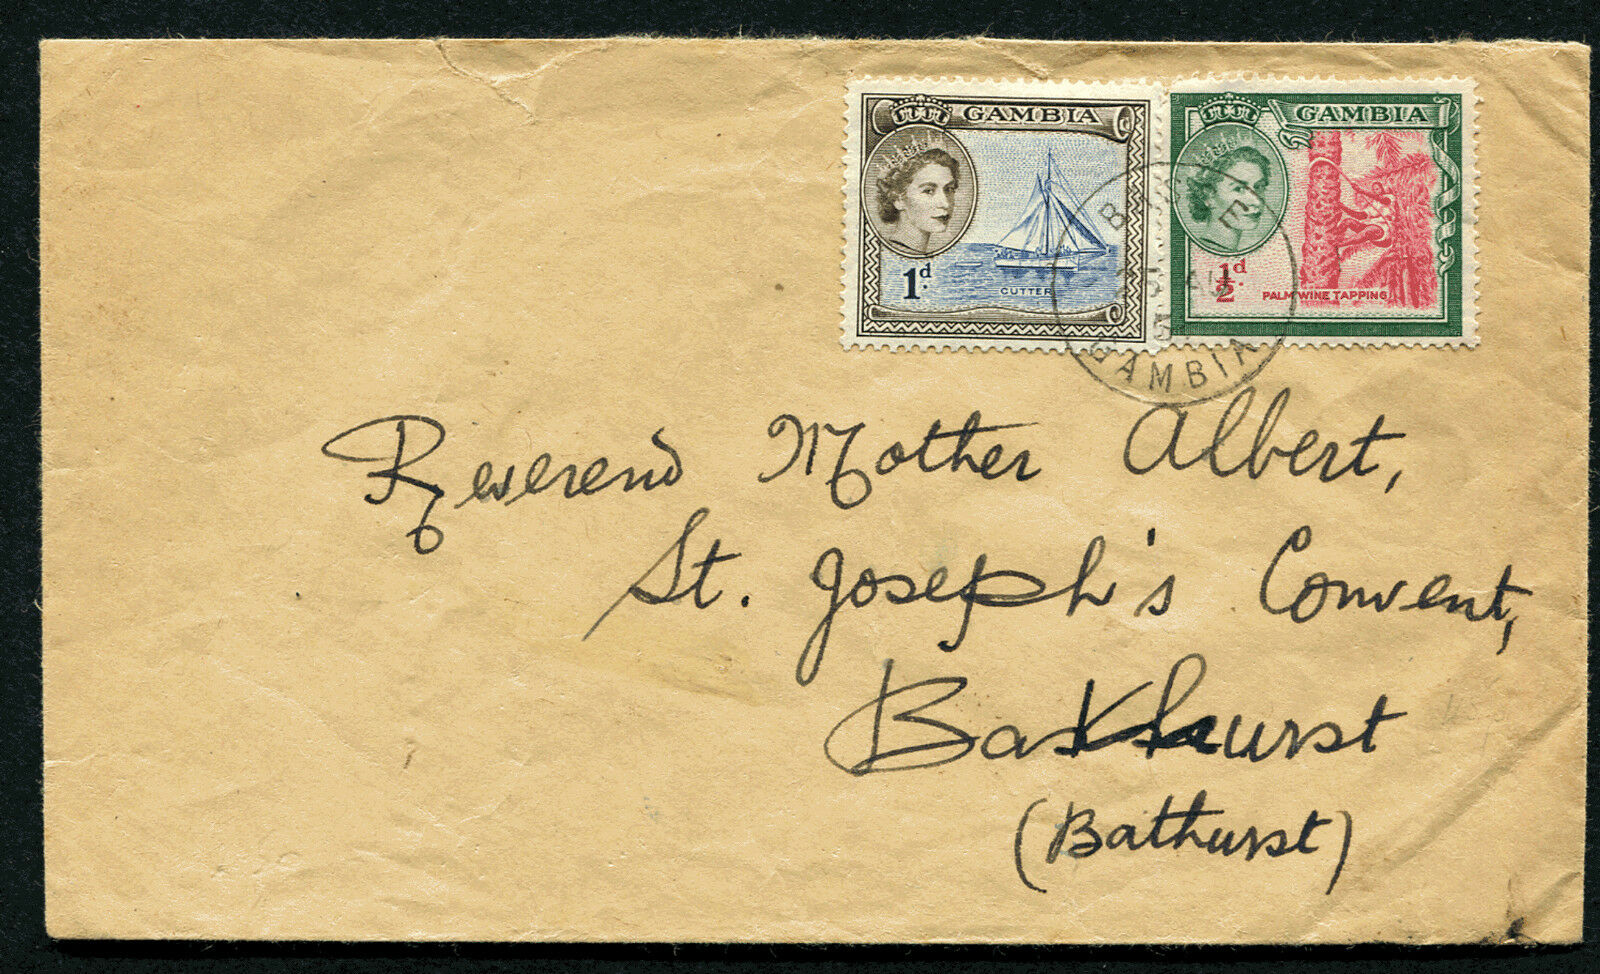 GAMBIA
1d.
CUTTER
GAMBIA
½d.
PALM WINE TAPPING
GAMBIA
Reverend Mother Albert,
St. Joseph's Convent,
Bathurst
(Bathurst)